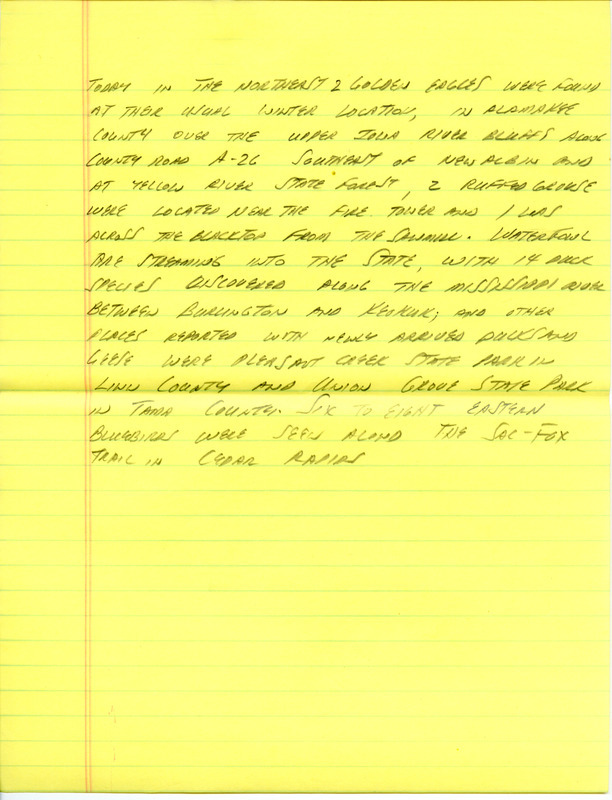 TODAY IN THE NORTHEAST 2 GOLDEN EAGLES WERE FOUND
AT THEIR USUAL WINTER LOCATION, IN ALAMAKEE
COUNTY OVER THE UPPER IOWA RIVER BLUFFS ALONG
COUNTY ROAD A-26 SOUTHEAST OF NEW ALBIN AND
AT YELLOW RIVER STATE FOREST, 2 RUFFED GROUSE
WERE LOCATED NEAR THE FIRE TOWER AND 1 WAS
ACROSS THE BLACKTOP FROM THE SAWMILL. WATERFOWL
ARE STREAMING INTO THE STATE, WITH 14 DUCK
SPECIES DISCOVERED ALONG THE MISSISSIPPI RIVER
BETWEEN BURLINGTON AND KEOKUK; AND OTHER
PLACES REPORTED WITH NEWLY ARRIVED DUCKS AND
GEESE WERE PLEASANT CREEK STATE PARK IN
LINN COUNTY AND UNION GROVE STATE PARK
IN TAMA COUNTY. SIX TO EIGHT EASTERN
BLUEBIRDS WERE SEEN ALONG THE SAC-FOX
TRAIL IN CEDAR RAPIDS